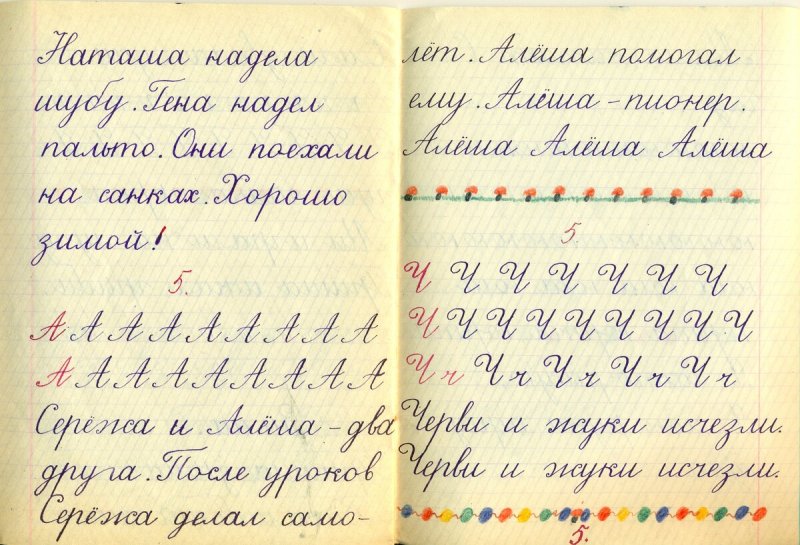 Наташа надела
шубу. Гена надел
пальто. Они поехали
на санках. Хорошо
зимой!
5.
А А А А А А А А А
А А А А А А А А А
Серёжа и Алёша – два
друга. После уроков
Серёжа делал само-
лёт. Алёша помогал
ему. Алёша – пионер.
Алёша Алёша Алёша
5.
Ч Ч Ч Ч Ч Ч Ч
Ч Ч Ч Ч Ч Ч Ч Ч Ч
Ч ч Ч ч Ч ч Ч ч Ч ч
Черви и жуки исчезли.
Черви и жуки исчезли.
5.